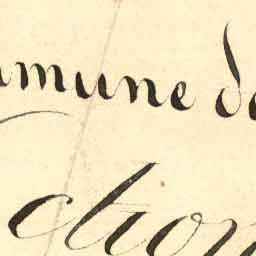 mmune de
ction